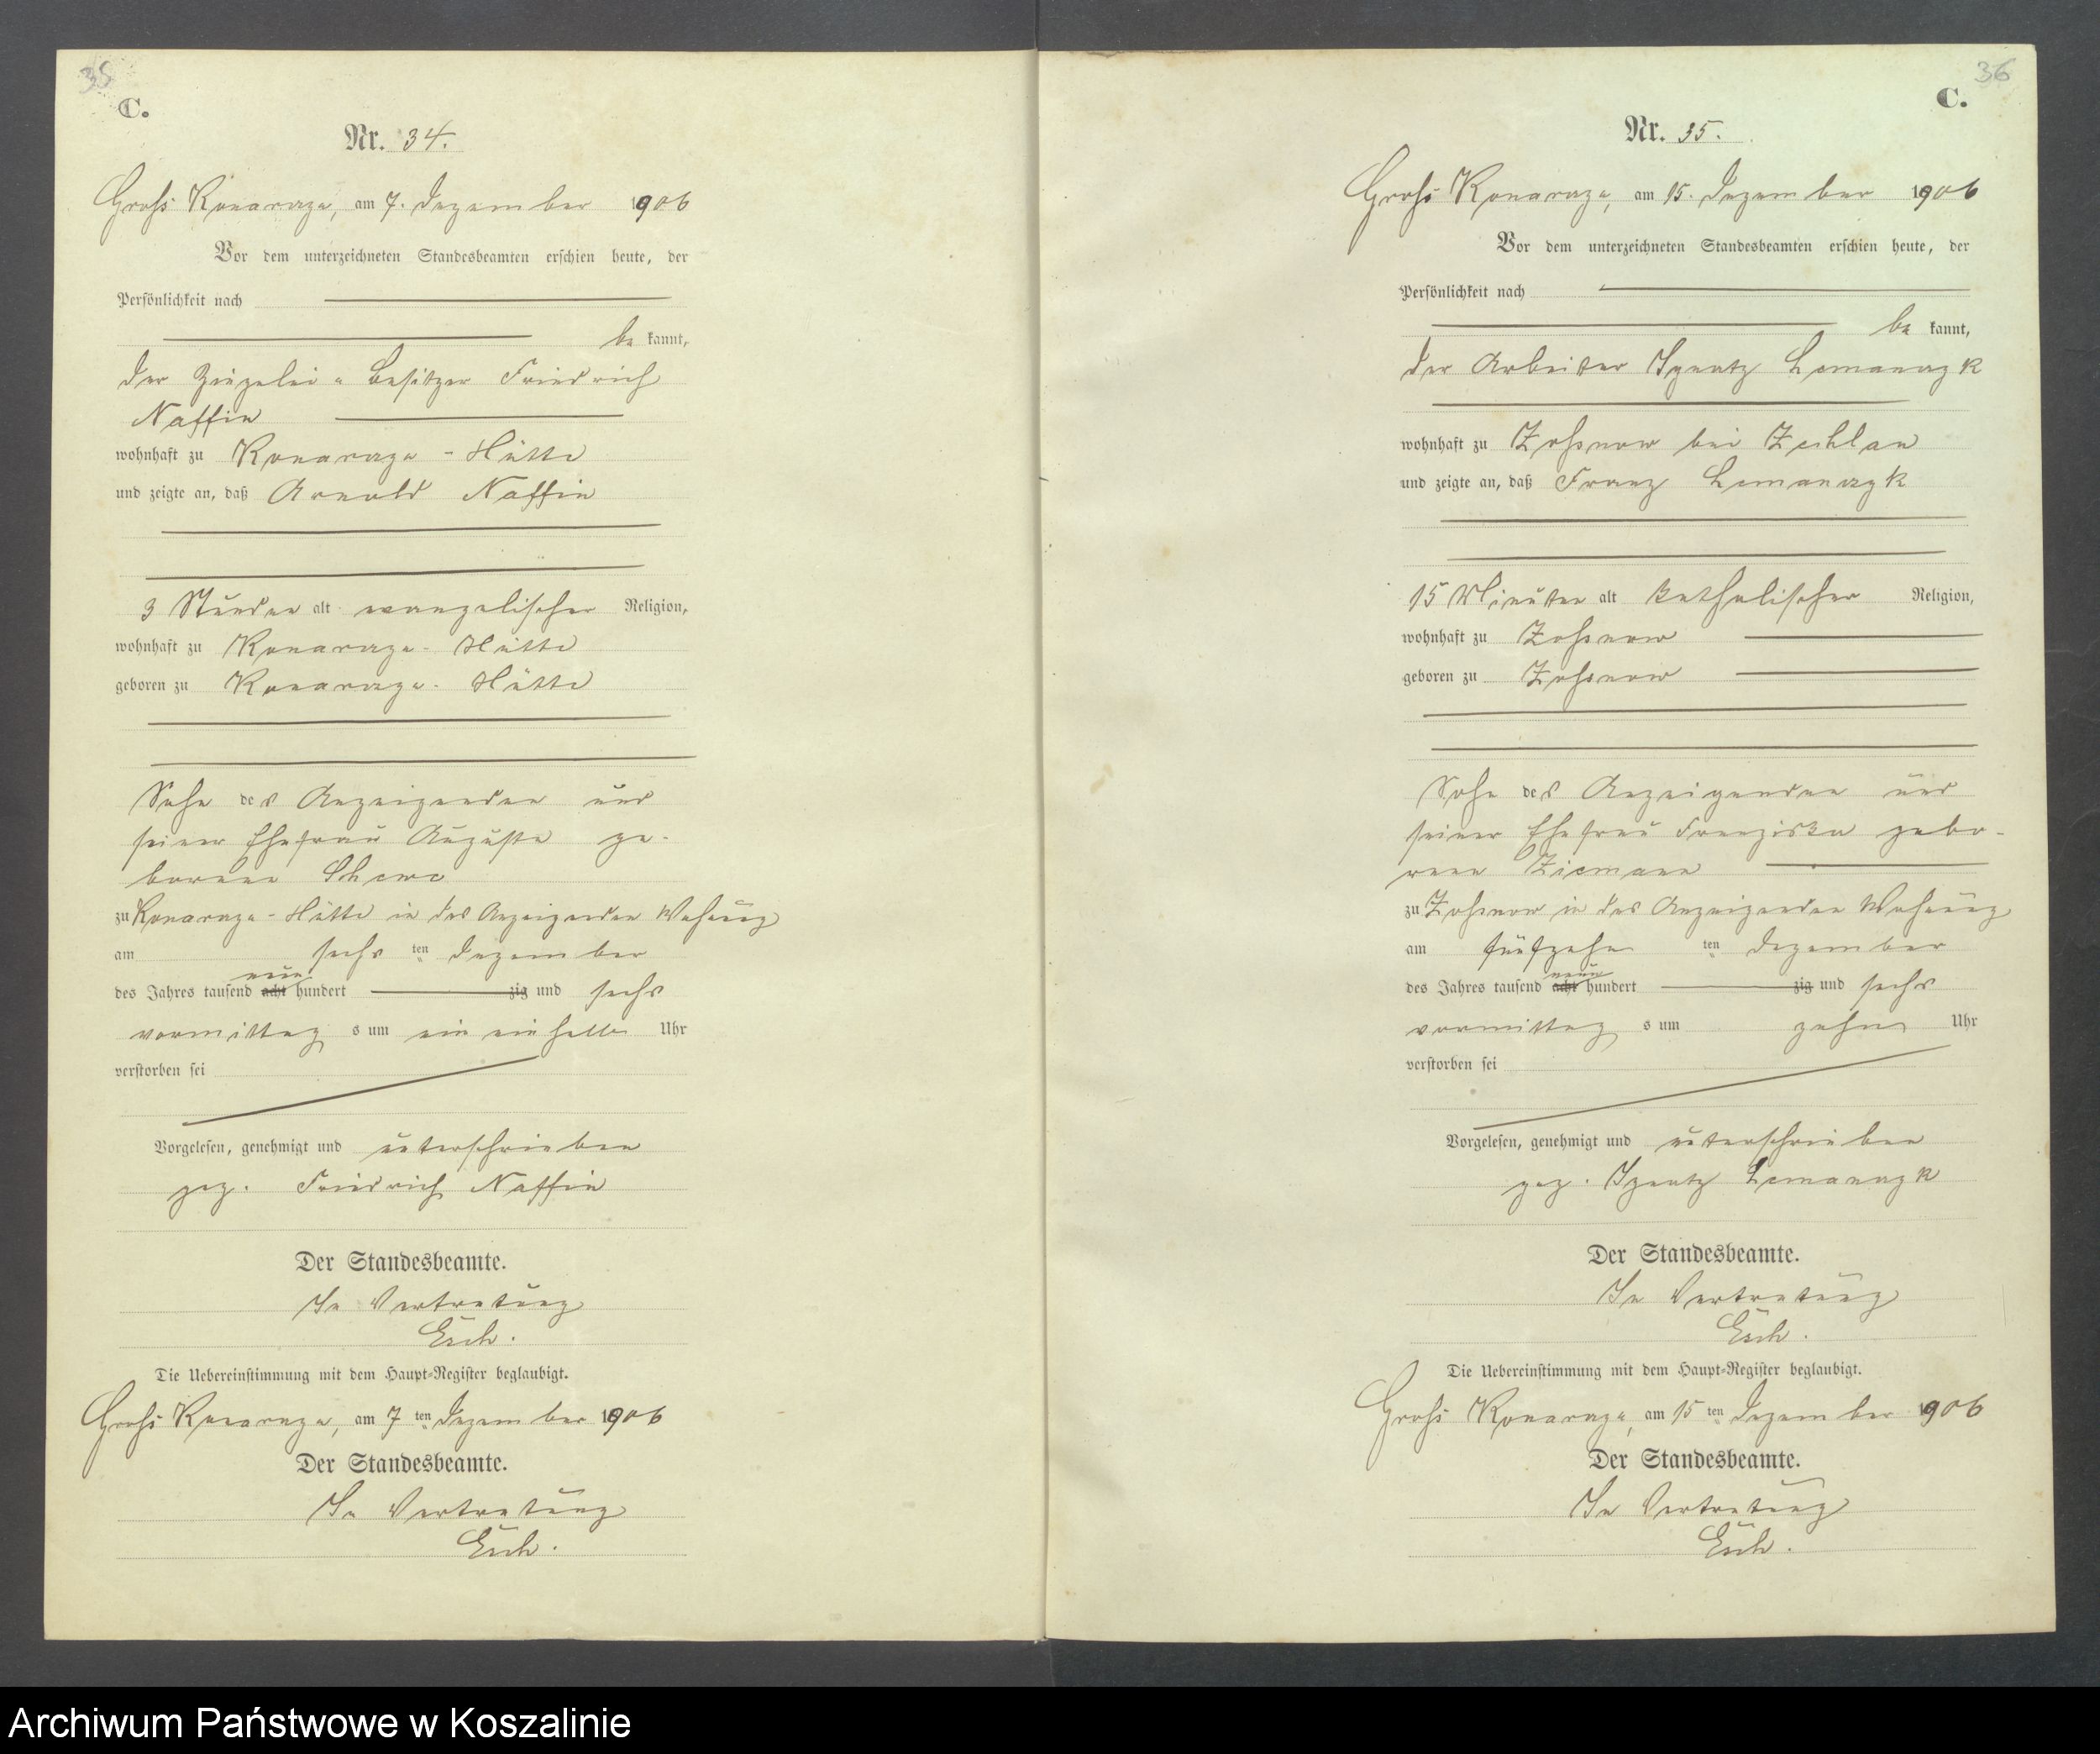 35
C.
Nr. 34.
Groß Konarczyn, am 7. Dezember 1906
Vor dem unterzeichneten Standesbeamten erschien heute, der
Persönlichkeit nach
bekannt,
der Ziegelei-Besitzer Friedrich
Naffin
wohnhaft zu Konarczyn-Hütte
und zeigte an, daß Arnold Naffin
3 Stunden alt evangelischer Religion,
wohnhaft zu Konarczyn-Hütte
geboren zu Konarczyn-Hütte
Sohn des Anzeigenden und
seiner Ehefrau Auguste ge-
borenen
zu Konarczyn-Hütte in des Anzeigenden Wohnung
am sechsten Dezember
des Jahres tausend acht neun hundert zig und sechs
vormittags um ein ein halb Uhr
verstorben sei
Vorgelesen, genehmigt und unterschrieben
gez. Friedrich Naffin
Der Standesbeamte.
In Vertretung
Esch.
Die Uebereinstimmung mit dem Haupt-Register beglaubigt.
Groß Konarczyn, am 7ten Dezember 1906
Der Standesbeamte.
In Vertretung
Esch.
36
C.
Nr. 35.
Groß Konarczyn, am 15. Dezember 1906
Vor dem unterzeichneten Standesbeamten erschien heute, der
Persönlichkeit nach
bekannt,
der Arbeiter Ignatz Lemanczyk
wohnhaft zu Zossnow bei Zechlau
und zeigte an, daß Franz Lemanczyk
15 Minuten alt katholischer Religion,
wohnhaft zu Zossnow
geboren zu Zossnow
Sohn des Anzeigenden und
seiner Ehefrau Franziska gebo-
rene Ziemann
zu Zossnow in des Anzeigenden Wohnung
am fünfzehnten Dezember
des Jahres tausend acht neun hundert zig und sechs
vormittags um zehn Uhr
verstorben sei
Vorgelesen, genehmigt und unterschrieben
gez. Ignatz Lemanczyk
Der Standesbeamte.
In Vertretung
Esch.
Die Uebereinstimmung mit dem Haupt-Register beglaubigt.
Groß Konarczyn, am 15ten Dezember 1906
Der Standesbeamte.
In Vertretung
Esch.
Archiwum Państwowe w Koszalinie